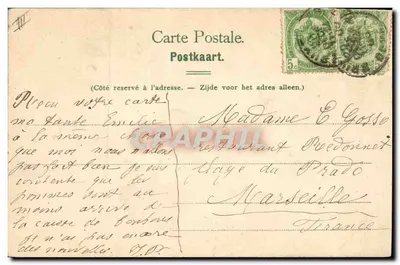 Carte Postale.
Postkaart.
(Côté reservé à l'adresse. — Zijde voor het adres alleen.)
5c
Reçu votre carte
ma tante Emelie
à la même
que moi nous
pas fort bien je suis
contente que les
pommes sont au
moins arrivé
la caisse de bonbons
n'a pas encore
des nouvelles
Madame E Gosso
restaurant Redonnet
Plage du Prado
Marseille
France
CRAPHIL